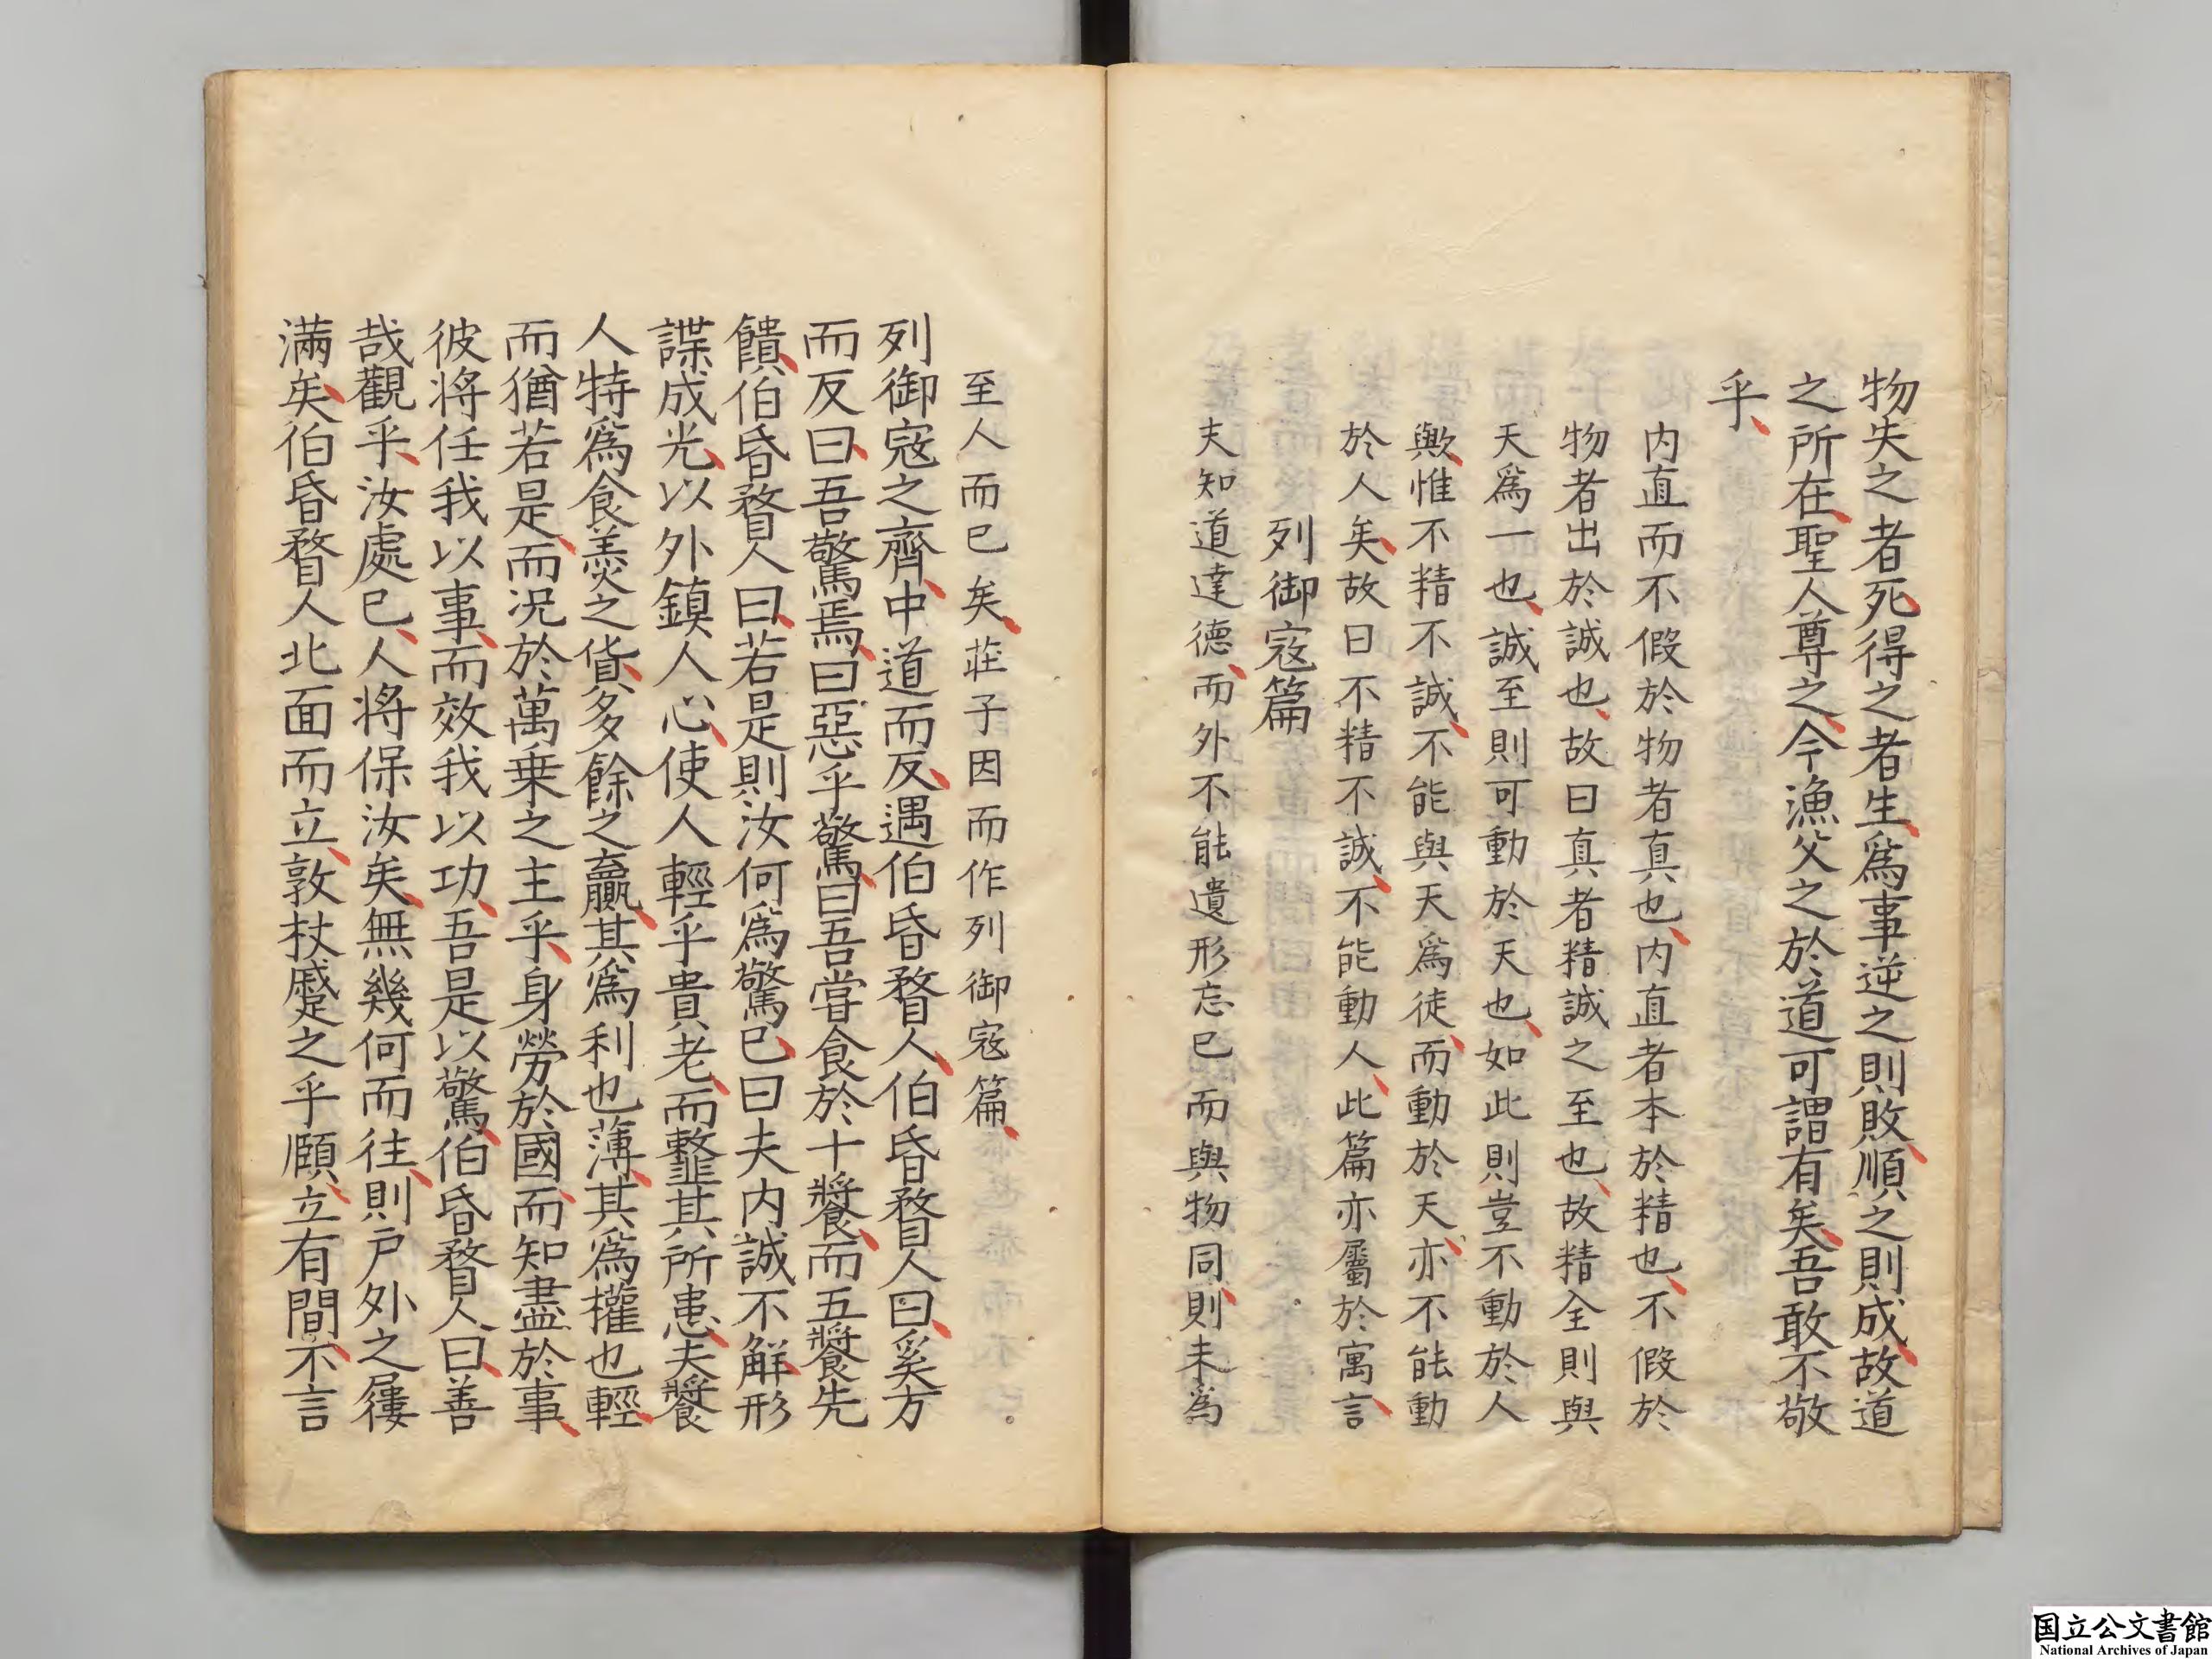 物失之者死得之者生爲事逆之則敗順之則成故道
之所在聖人尊之今漁父之於道可謂有矣吾敢不敬
乎
内直而不假於物者真也内直者本於精也不假於
物者出於誠也故曰真者精誠之至也故精全則與
天爲一也誠至則可動於天也如此則豈不動於人
歟惟不精不誠不能與天爲徒而動於天亦不能動
於人矣故曰不精不誠不能動人此篇亦屬於寓言
列御寇篇
夫知道達德而外不能遺形忘已而與物同則未為
至人而已矣莊子因而作列御寇篇
列御寇之齊中道而反遇伯昏瞀人伯昏瞀人曰奚方
而反曰吾驚焉曰惡乎驚曰吾嘗食於十饗而五饗先
饋伯昏瞀人曰若是則汝何爲驚已曰夫内誠不解形
諜成光以外鎮人心使人輕乎貴老而韲其所患夫饗
人特爲食羹之貨多餘之贏其爲利也薄其爲權也輕
而猶若是而況於萬乗之主乎身勞於國而知盡於事
彼将任我以事而效我以功吾是以驚伯昏瞀人曰善
哉觀乎汝處已人将保汝矣無幾何而往則戸外之屨
満矣伯昏瞀人北面而立敦杖蹙之乎頤立有間不言
国立公文書館
National Archives of Japan